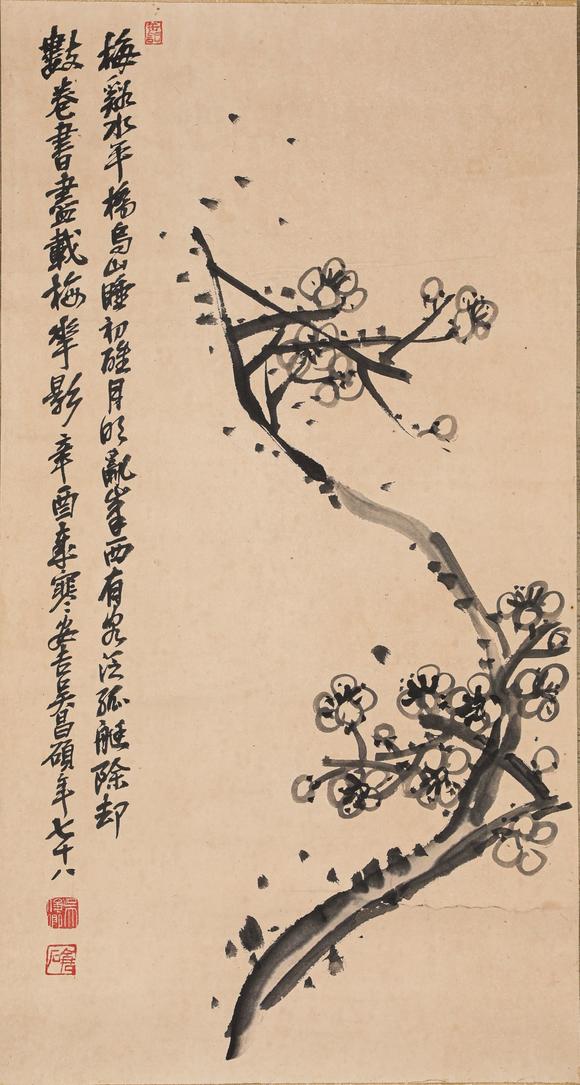 梅谿水平橋烏山睡初醒月明亂峯西有客泛孤艇除却
數卷書盡載梅華影 辛酉寒安吉吳昌碩年七十八